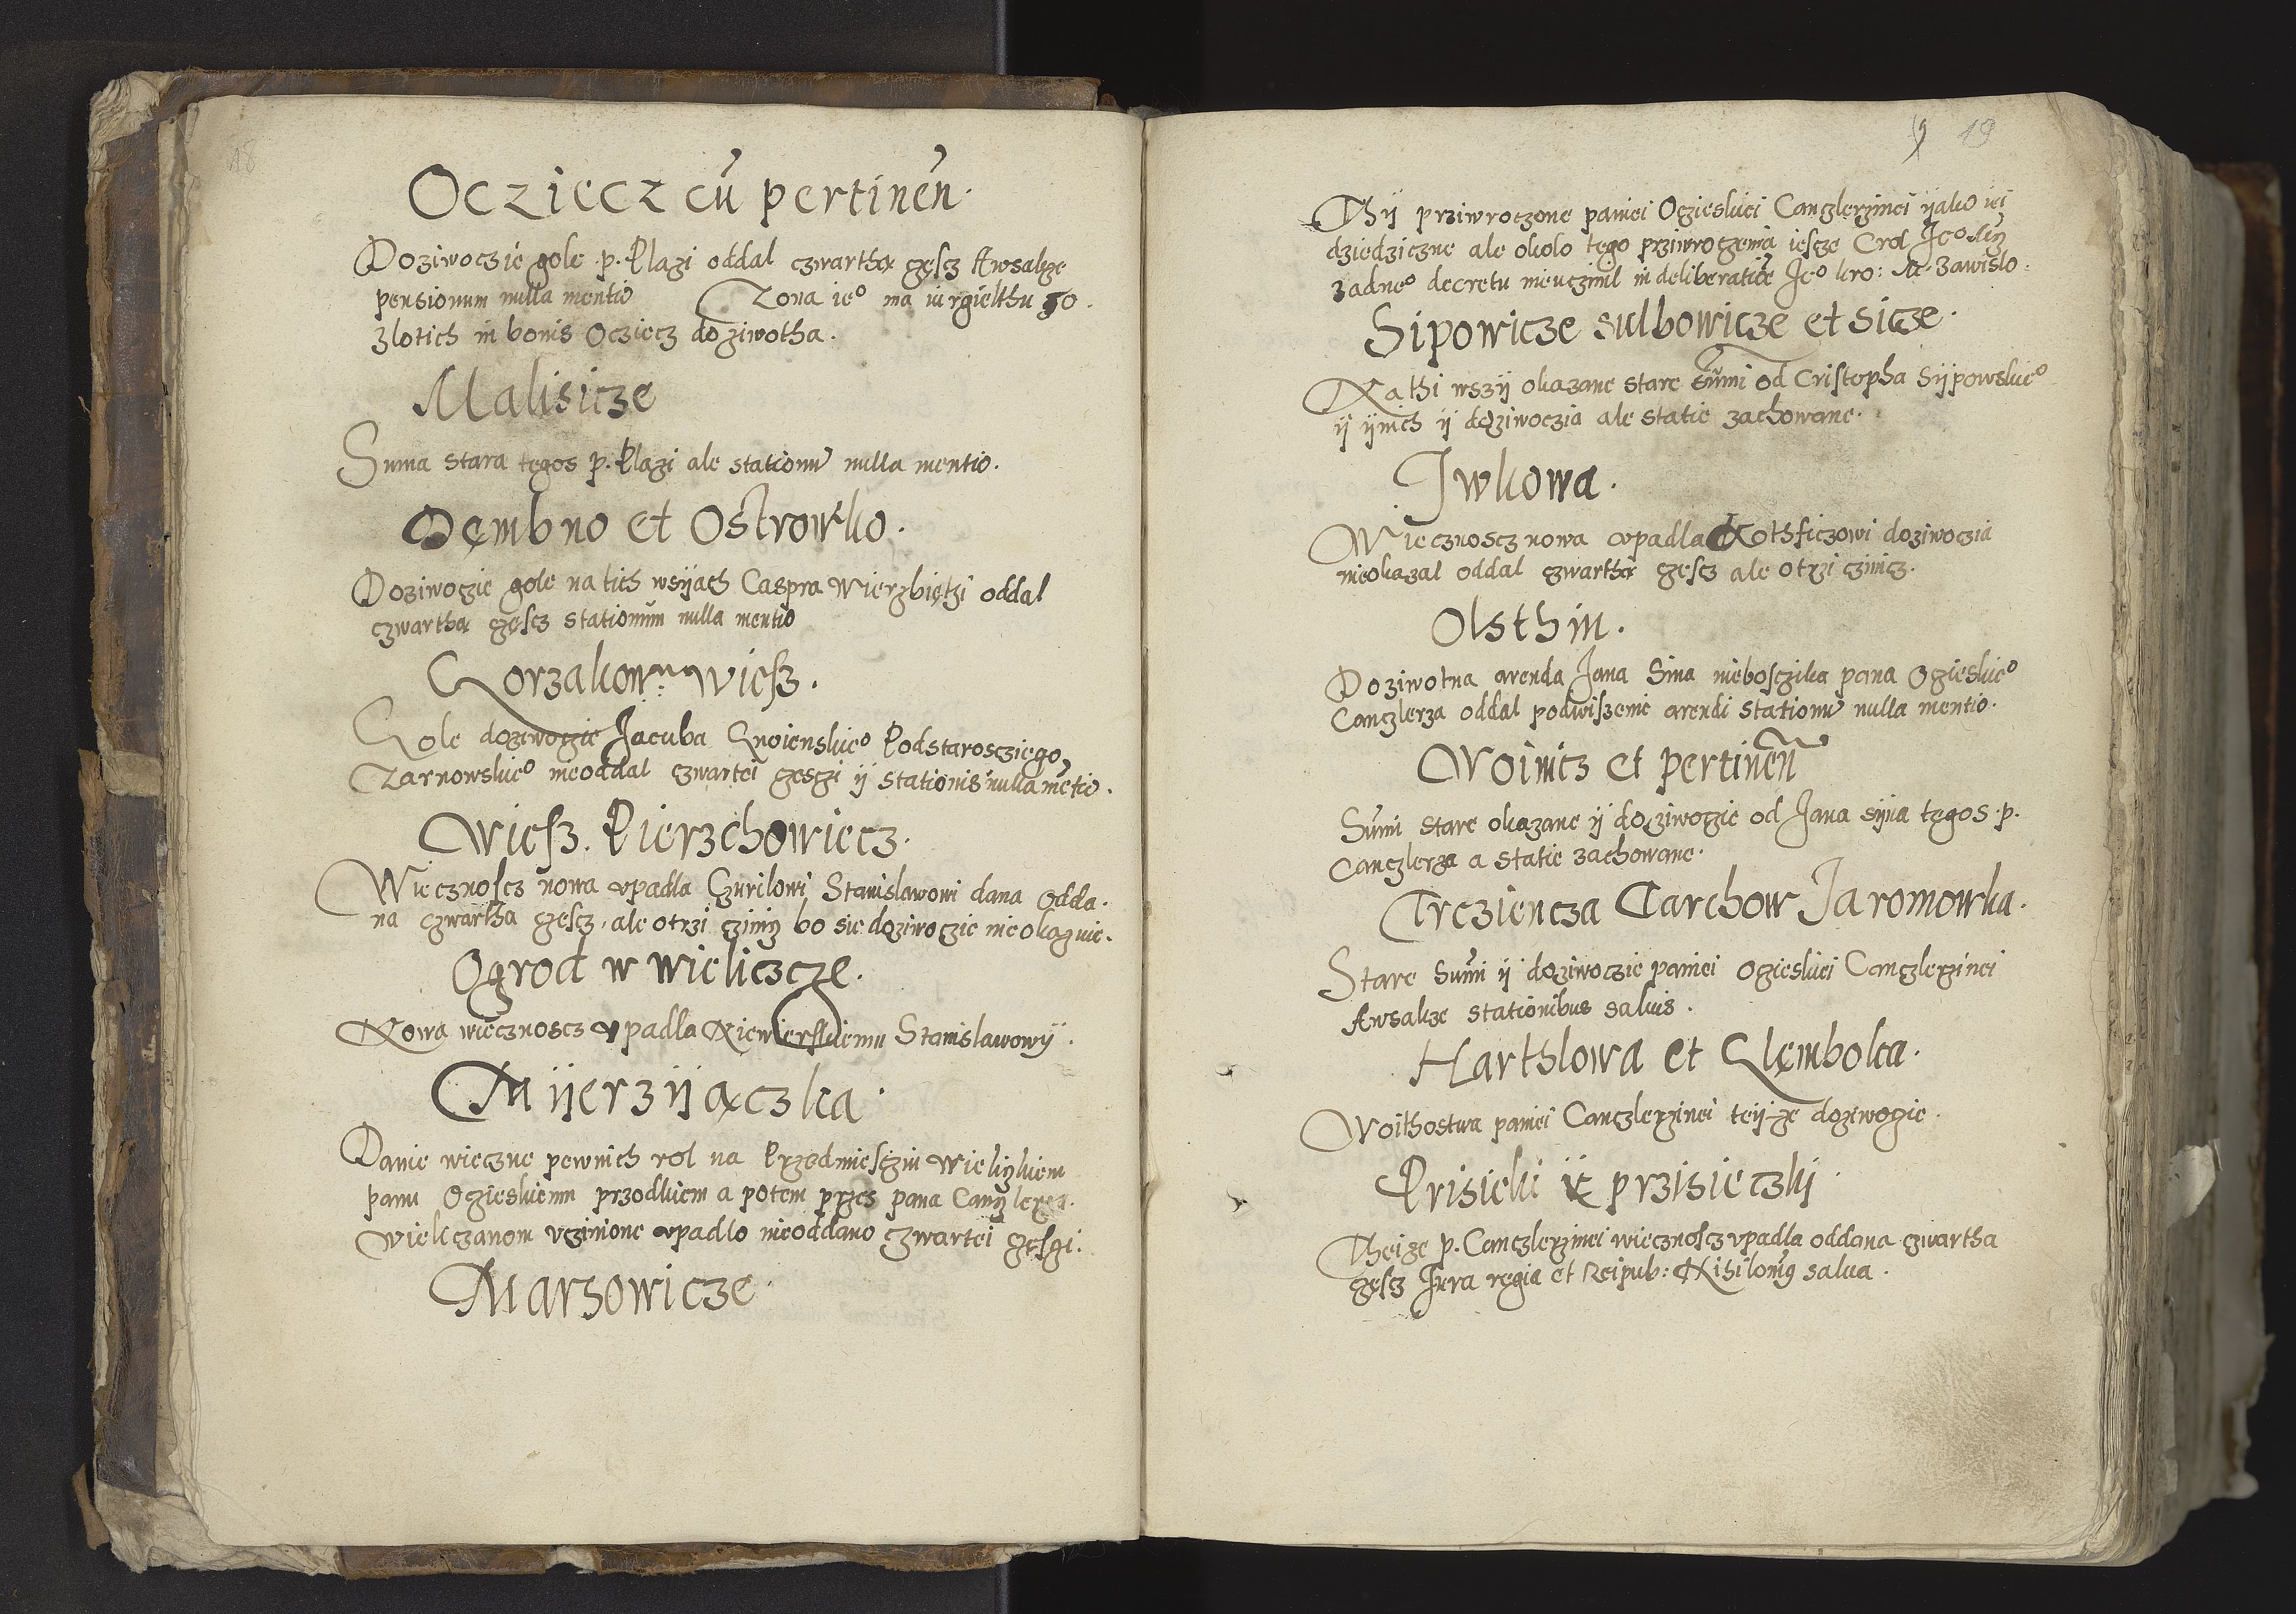 18
Ocziecz cũ pertineñ.
Doziwoczie gole p. Plazi oddal czwarthą częscz Awsakze
pensionum nulla mentio Zona ieº ma iurgielthu 50.
zlotich in bonis Ocziecz do ziwotha.
Malisicze
Suma stara tegos p. Plazi ale stationũ nulla mentio.
Dęmbno et Ostrowko.
Doziwoczie gole na tich wsijach Caspra Wierzbiętzi oddal
czwarthą częscz stationum nulla mentio
Gorzakow wiesz.
Gole doziwoczie Jacuba Gnoienskieº Podstarosczięgo
Zarnowskieº nieoddal czwartei częsczi ij stationis nulla mẽtio.
Wiesz. Pierzchowiecz.
Wiecznoscz nowa vpadla Czurilowi Stanislawowi dana odda.
na czwartha częscz, ale otrzi czinią bo sie doziwoczie nieokazuie.
Ogrod w wieliczcze.
Nowa wiecznoscz vpadla Niewierskiemu Stanislawowij.
Mijerzijączka.
Danie wieczne pewnich rol na Przedmiesciu Wielizkiem
panu Ocziesskiemu przodkiem a potem przes pana Canczlerza.
Wieliczanom vczinione vpadlo nieoddano czwartei częsczi.
Marszowicze.
9 19
Thij prziwroczone paniei Oczieskiei Canczlerzinei ijako iei
dziedziczne ale około tego prziwroczenia iescze Crol Jeº
zadneº decretu nieuczinil in deliberatiõe Jeº kro: M. zawislo.
Sipowicze sulbowicze et sicze.
Na thi wszij okazane stare sũmi od Cristopha Sijpowskieº
ij ijnich ij doziwoczia ale statie zachowane.
Jwkowa.
Wiecznoscz nowa vpadla Kothficzowi doziwoczia
nieokazal oddal czwarthą częscz ale otrzi czinicz.
Olsthin.
Doziwotna arenda Jana Sina nieboszczika pana Oczieskieº
Canczlerza oddal podwiszenie arendi stationũ nulla mentio.
Woinicz et pertineñ
Sũmi stare okazane ij doziwoczie od Jana sijna tegos p.
Canczlerza a statie zachowane.
Trcziencza Carchow Jaromowka.
Stare Sũmi ij doziwoczie paniei Oczieskiei Canczlerzinei
Awsakze stationibus saluis.
Harthlowa et Glęmboka.
Woithostwa paniei Canczlerzinei teijze doziwoczie.
Prisieki ij przisieczkij.
Theize p. Canczlerzinei wiecznoscz vpadla oddana czwartha
częscz Jura regia et Reipub: salua.